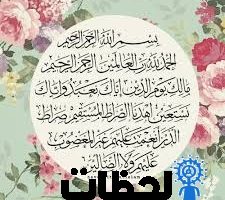 بسم الله الرحمن الرحيم
الحمد لله رب العالمين الرحمن الرحيم
مالك يوم الدين إياك نعبد وإياك
نستعين اهدنا الصراط المستقيم صراط
الذين أنعمت عليهم غير المغضوب
عليهم ولا الضالين
لحظات